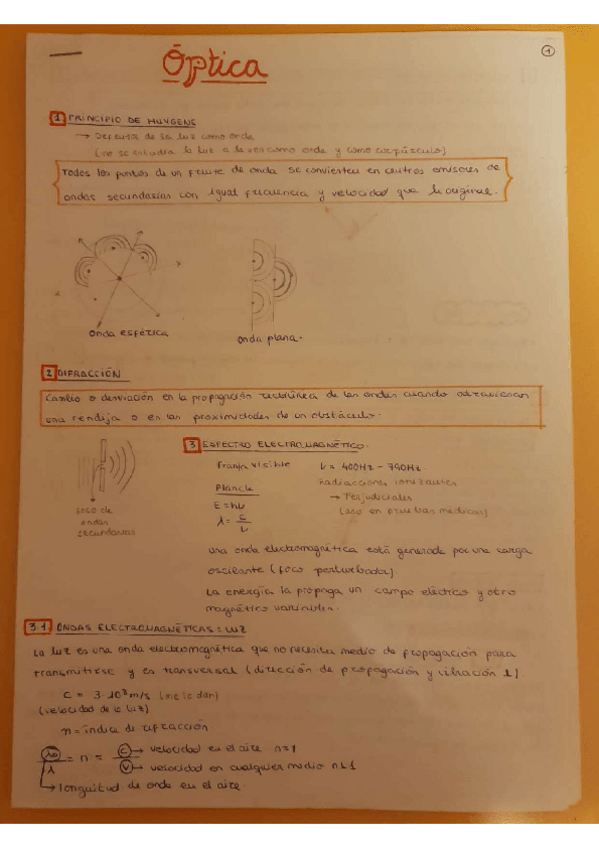 1
Óptica
1 PRINCIPIO DE HUYGENS
→ Defensor de la luz como onda
(no se estudia la luz a la vez como onda y como corpúsculo)
Todos los puntos de un frente de onda se convierten en centros emisores de
ondas secundarias con igual frecuencia y velocidad que la origina.
onda esférica
onda plana.
2 DIFRACCIÓN
Cambio o desviación en la propagación rectilínea de las ondas cuando atraviesan
una rendija o en las proximidades de un obstáculo.
foco de
ondas
secundarias
3 ESPECTRO ELECTROMAGNÉTICO.
Franja visible ν = 400Hz - 790Hz
Planck Radiaciones ionizantes
E = hν → Perjudiciales
λ = c/ν (uso en pruebas médicas)
una onda electromagnética está generada por una carga
oscilante (foco perturbador)
La energía la propaga un campo eléctrico y otro
magnético variables.
3.1 ONDAS ELECTROMAGNÉTICAS = LUZ
La luz es una onda electromagnética que no necesita medio de propagación para
transmitirse y es transversal (dirección de propagación y vibración ⊥)
c = 3·10⁸ m/s (me lo dan)
(velocidad de la luz)
n = índice de refracción
λ₀/λ = n = c → velocidad en el aire n=1
v → velocidad en cualquier medio
→ longuitud de onda en el aire.